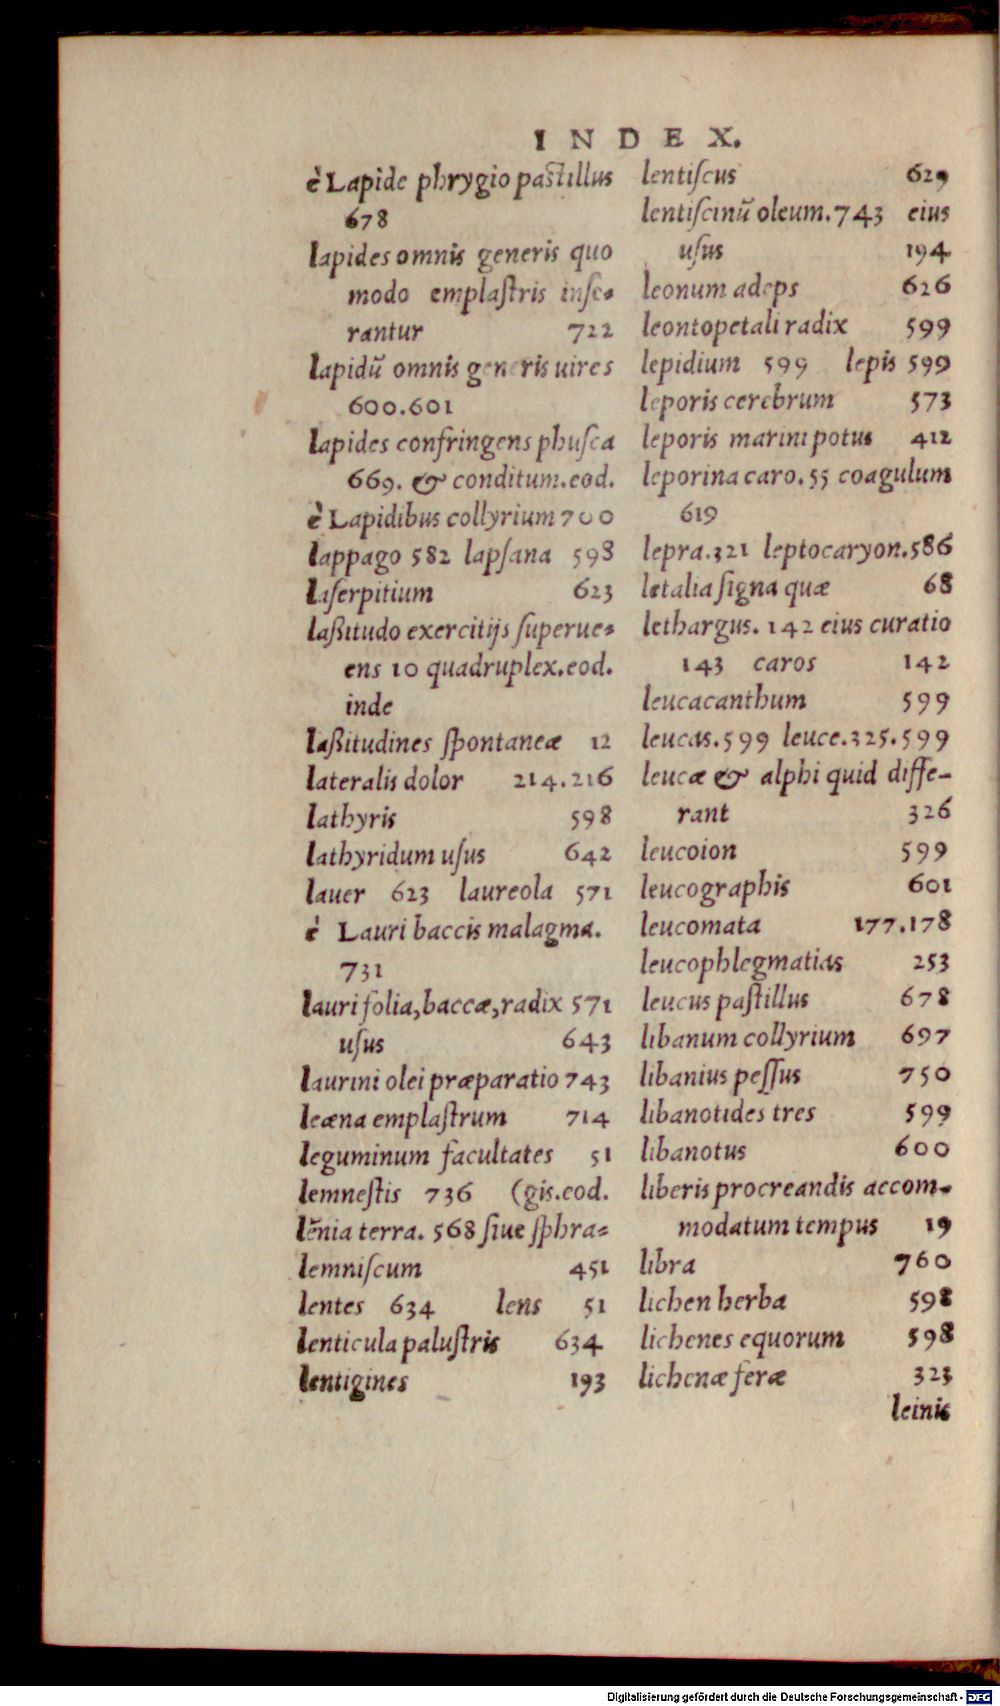 INDEX.
è Lapide phrygio pastillus
678
lapides omnis generis quo
modo emplaſtris inſe-
rantur 722
lapidū omnis generis uires
600.601
lapides confringens phuſca
669. & conditum.eod.
è Lapidibus collyrium 700
lappago 582 lapſana 598
laſerpitium 623
laßitudo exercitijs ſuperue-
ens 10 quadruplex.eod.
inde
laßitudines ſpontaneæ 12
lateralis dolor 214.216
lathyris 598
lathyridum uſus 642
lauer 623 laureola 571
è Lauri baccis malagma.
731
lauri folia,baccæ,radix 571
uſus 643
laurini olei præparatio 743
leæna emplaſtrum 714
leguminum facultates 51
lemneſtis 736 (gis.eod.
lēnia terra. 568 ſiue ſphra-
lemniſcum 451
lentes 634 lens 51
lenticula paluſtris 634
lentigines 193
lentiſcus 629
lentiſcinū oleum.743 eius
uſus 194
leonum adeps 626
leontopetali radix 599
lepidium 599 lepis 599
leporis cerebrum 573
leporis marini potus 412
leporina caro.55 coagulum
619
lepra.321 leptocaryon.586
letalia ſigna quæ 68
lethargus. 142 eius curatio
143 caros 142
leucacanthum 599
leucas.599 leuce.325.599
leucæ & alphi quid diffe-
rant 326
leucoion 599
leucographis 601
leucomata 177.178
leucophlegmatias 253
leucus paſtillus 678
libanum collyrium 697
libanius peſſus 750
libanotides tres 599
libanotus 600
liberis procreandis accom-
modatum tempus 19
libra 760
lichen herba 598
lichenes equorum 598
lichenæ feræ 323
leinis
Digitalisierung gefördert durch die Deutsche Forschungsgemeinschaft - DFG